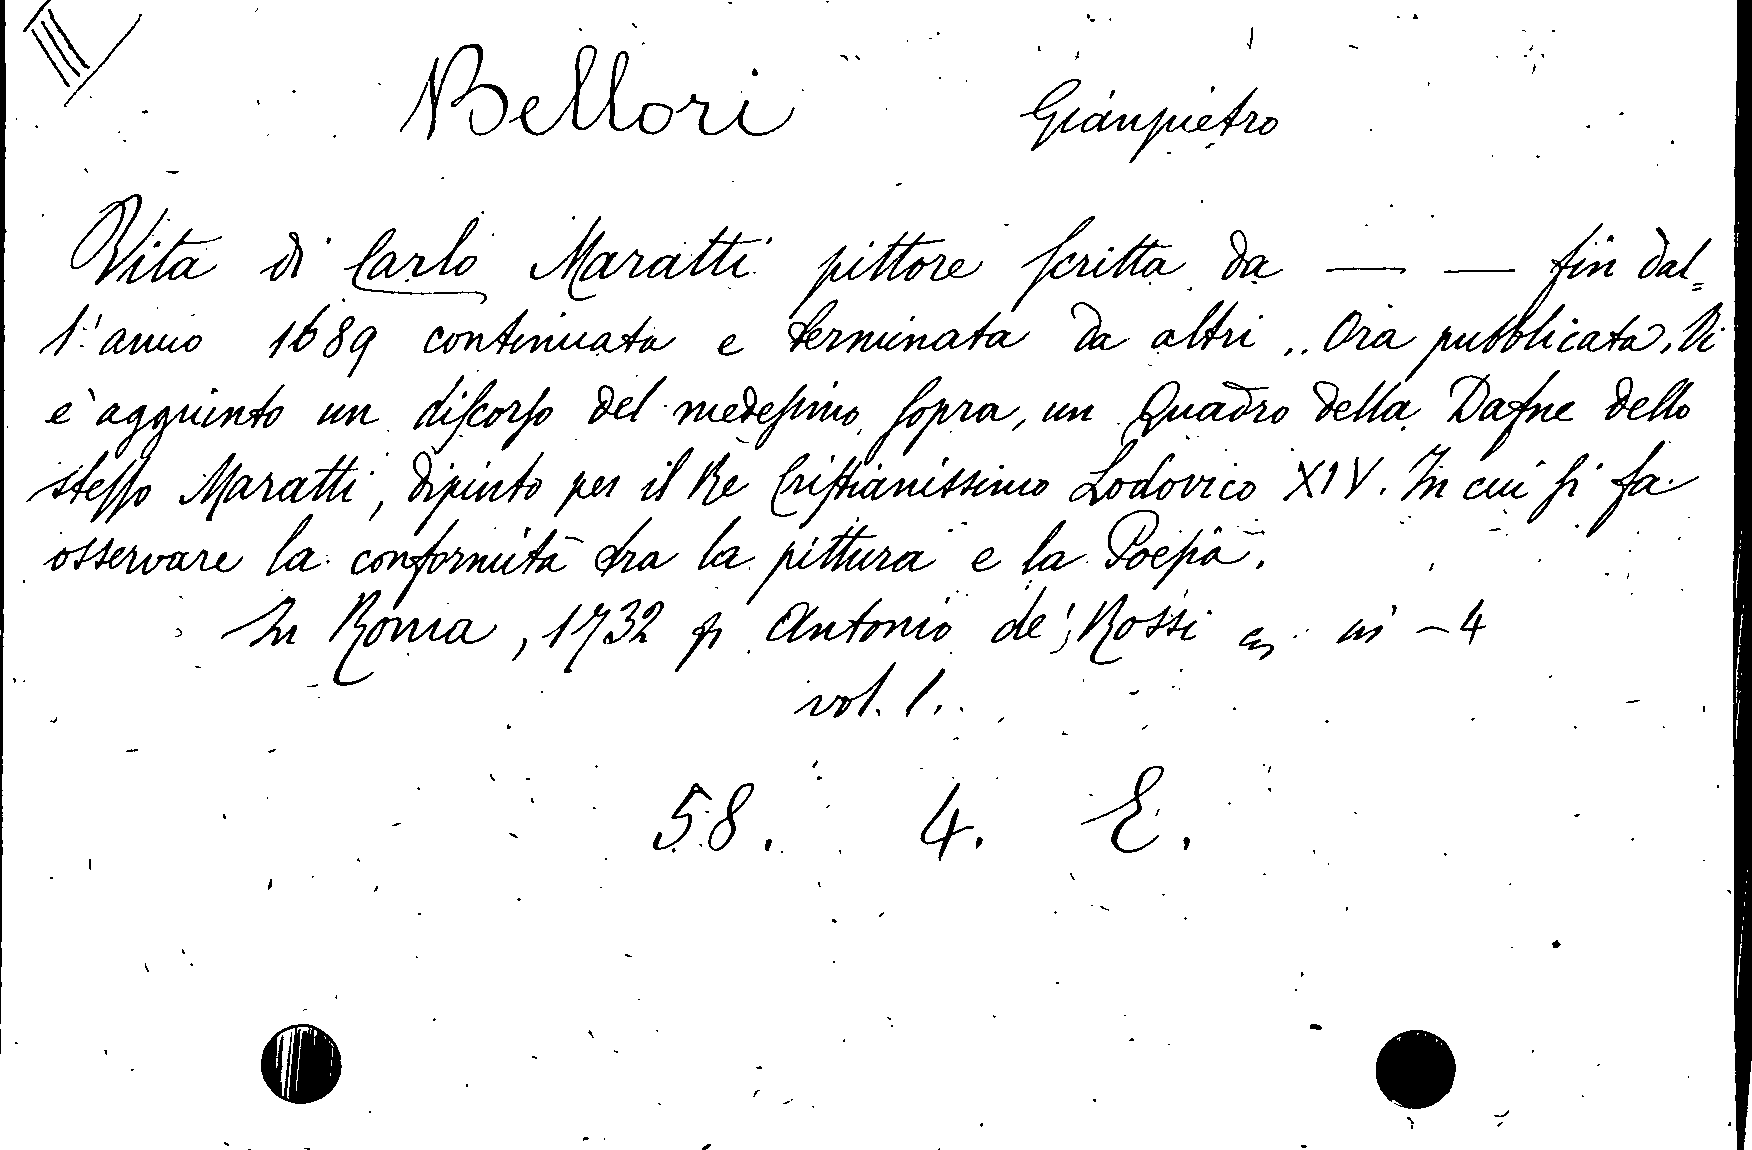 III
Bellori Gianpietro
Vita di Carlo Maratti pittore scritta da — — fin dal=
l'anno 1689 continuata e terminata da altri .. Ora pubblicata. Vi
è aggiunto un discorso del medesimo sopra, un Quadro della Dafne dello
stesso Maratti, dipinto per il Re Cristianissimo Lodovico XIV. In cui si fa
osservare la conformità tra la pittura e la Poesia.
In Roma, 1732 p Antonio de' Rossi in - 4
vol. 1.
58. 4. E.